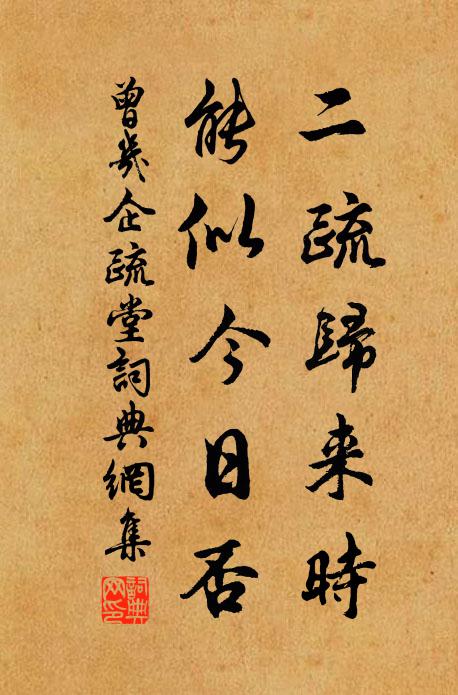 二疏歸来時
能似今日否
曾幾企疏堂詞典網集
詞典网印